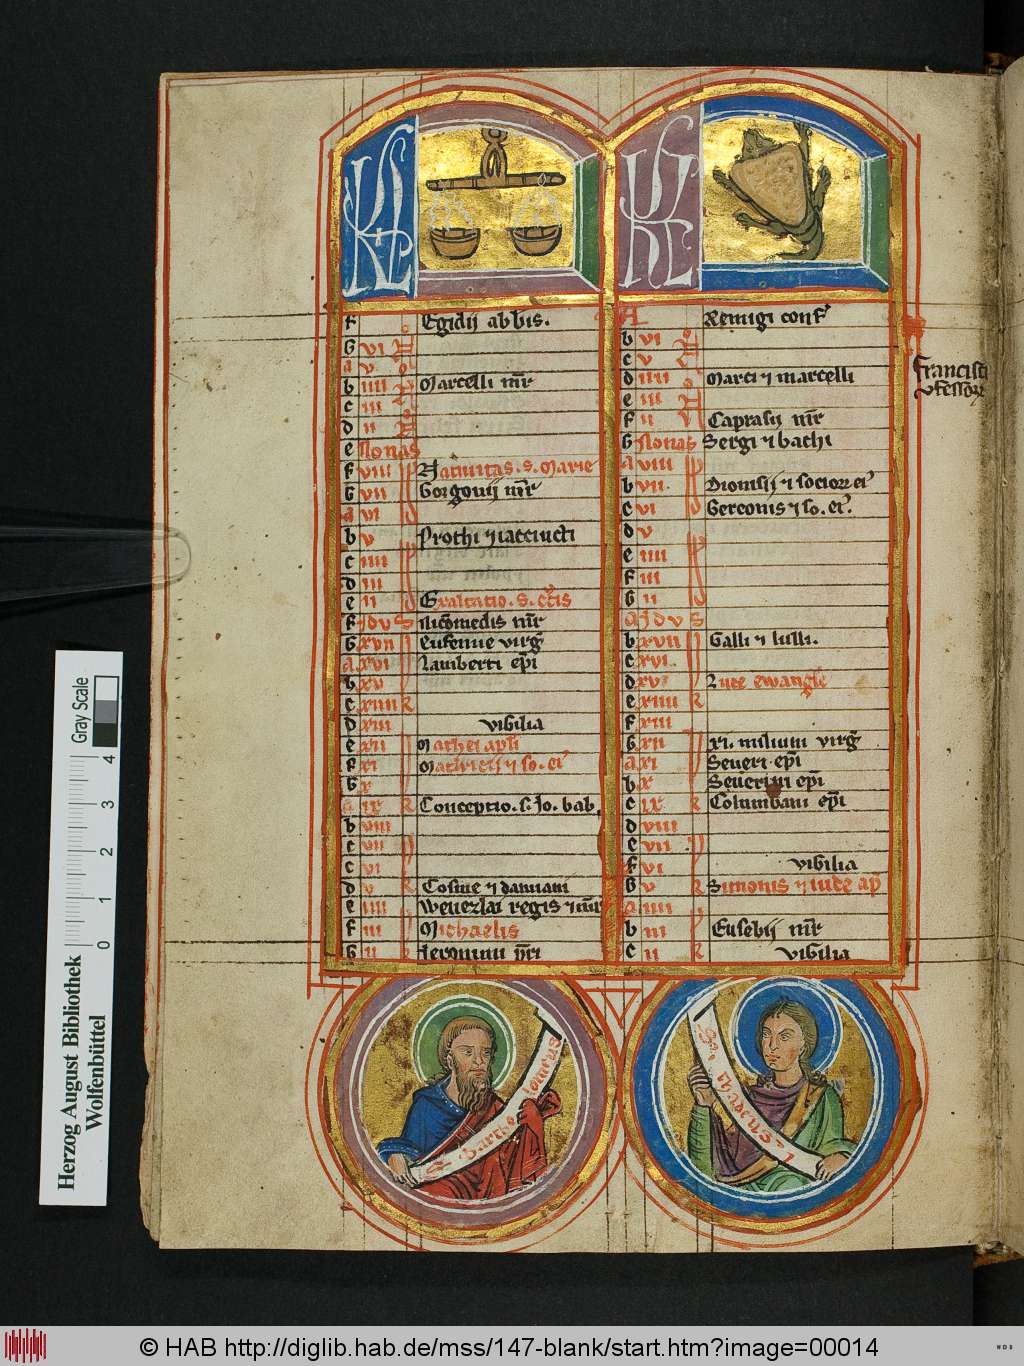 KL
f Egidij abbis.
G vi
a v
b iiii Marcelli mr
c iii
d ii
e Nonas
f viii Natiuitas. s. Marie
G vii Gorgonij mr
a vi
b v Prothi ⁊ iacincti
c iiii
d iii
e ii Exaltatio. s. crucis
f Jdus Nicomedis mr
G xvii Eufemie virg
a xvi Lamberti epi
b xv
c xiiii
d xiii vigilia
e xii Mathei apli
f xi Mauricii ⁊ so. ei
G x
a ix Conceptio. s. Jo. bab.
b viii
c vii
c vi
d v Cosme ⁊ damiani
e iiii Wenezlai regis ⁊ mr
f iii Michaelis
G ii Jeronimi pri
KL
A Remigi conf
b vi
c v
d iiii Marci ⁊ marcelli
e iii
f ii Caprasij mr
G Nonas Sergi ⁊ bachi
a viii
b vii Dionisij ⁊ socior ei
c vi Gereonis ⁊ so. ei
d v
e iiii
f iii
G ii
a Jdus
b xvii Galli ⁊ lulli.
c xvi
d xv Luce ewangle
e xiiii
f xiii
G xii xi. milium virg
a xi Seueri epi
b x Seuerini epi
c ix Columbani epi
d viii
e vii
f vi vigilia
G v Simonis ⁊ iude ap
a iiii
b iii Eusebij mr
c ii vigilia
Francisci
9fessor
S. Bartholomeus
S. Thadeus
Gray Scale
0 1 2 3 4
Herzog August Bibliothek
Wolfenbüttel
© HAB http://diglib.hab.de/mss/147-blank/start.htm?image=00014